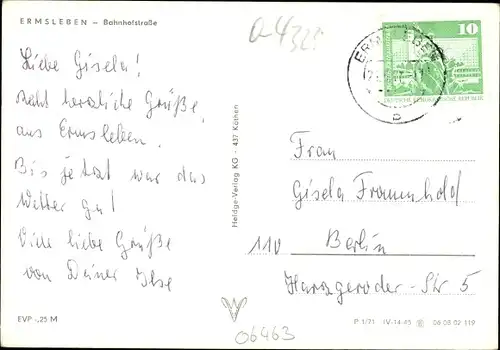 ERMSLEBEN – Bahnhofstraße
a-4323
Liebe Gisela!
Recht herzliche Grüße
aus Ermsleben.
Bis jetzt war das
Wetter gut
Viele liebe Grüße
von Deiner Ilse
EVP -,25 M
Heldge-Verlag KG · 437 Köthen
10
DEUTSCHE DEMOKRATISCHE REPUBLIK
Frau
Gisela Fraumhold
110 Berlin
Harzgeroder-Str. 5
V
06463
P 1/71 IV-14-45 06 08 02 119